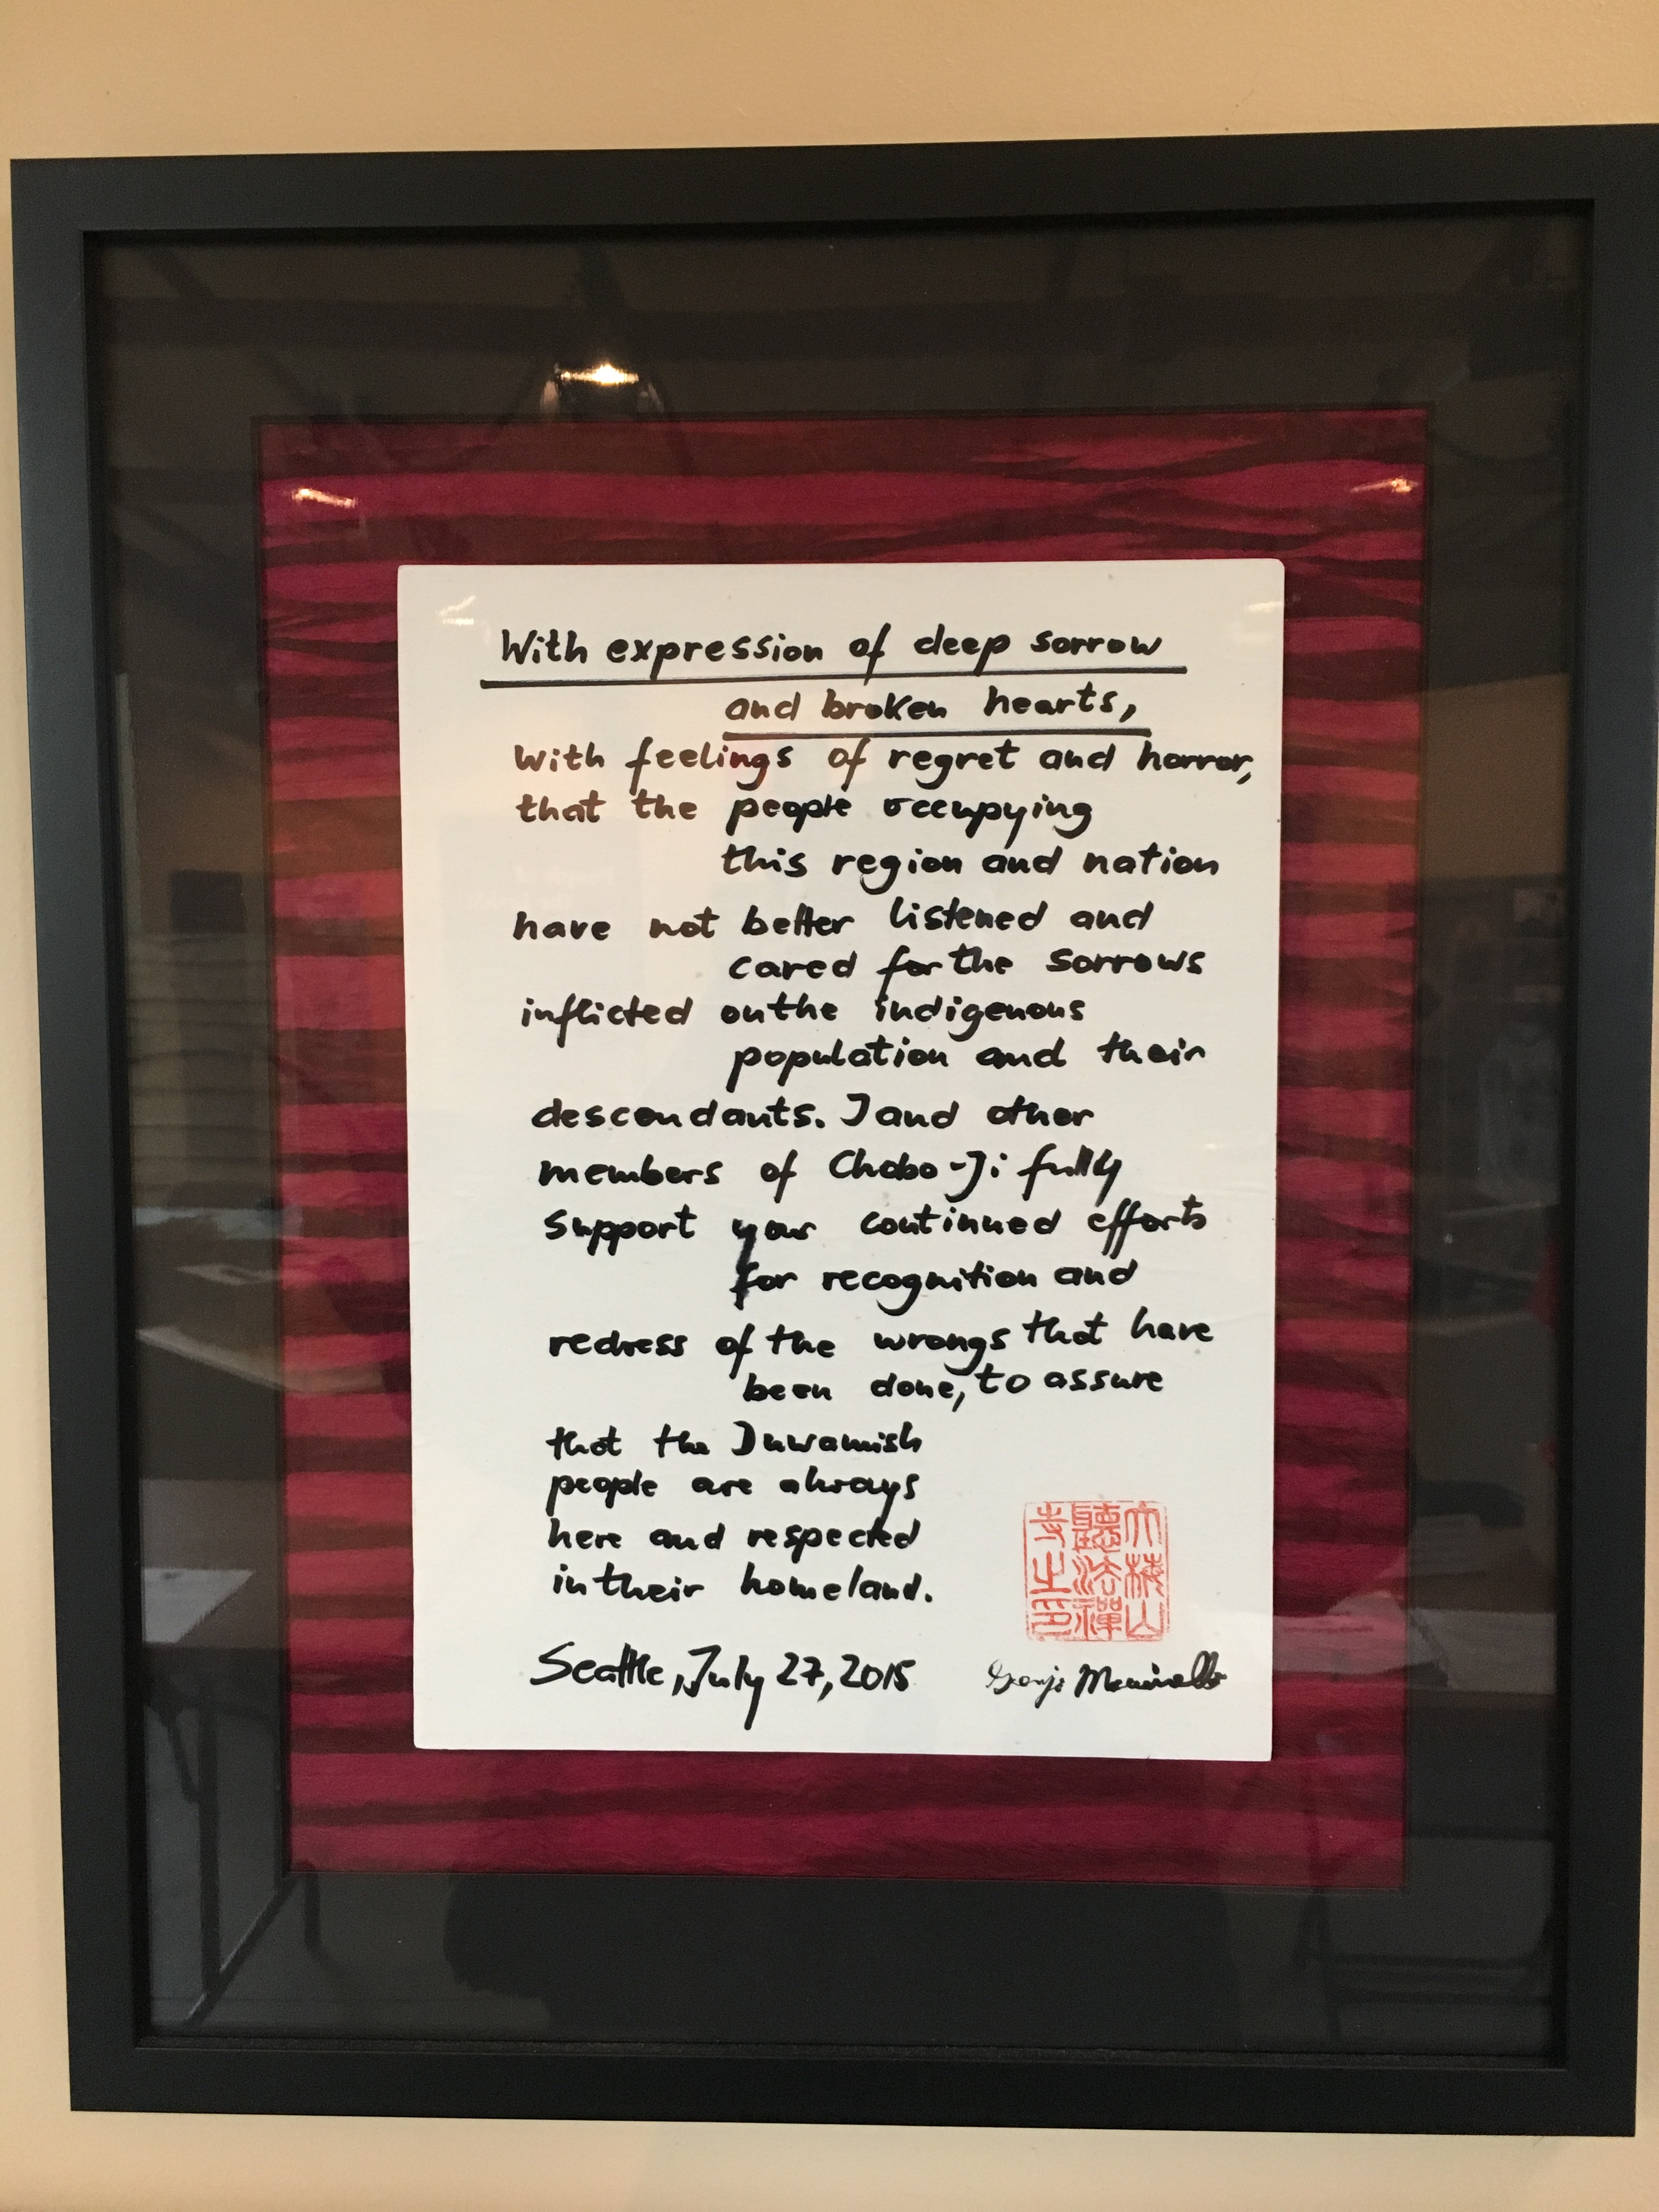 With expression of deep sorrow
and broken hearts,
With feelings of regret and horror,
that the people occupying
this region and nation
have not better listened and
cared for the sorrows
inflicted on the indigenous
population and their
descendants. I and other
members of Chobo-Ji fully
Support your continued efforts
for recognition and
redress of the wrongs that have
been done, to assure
that the Duwamish
people are always
here and respected
in their homeland.
Seattle, July 27, 2015
Genjo Marinello